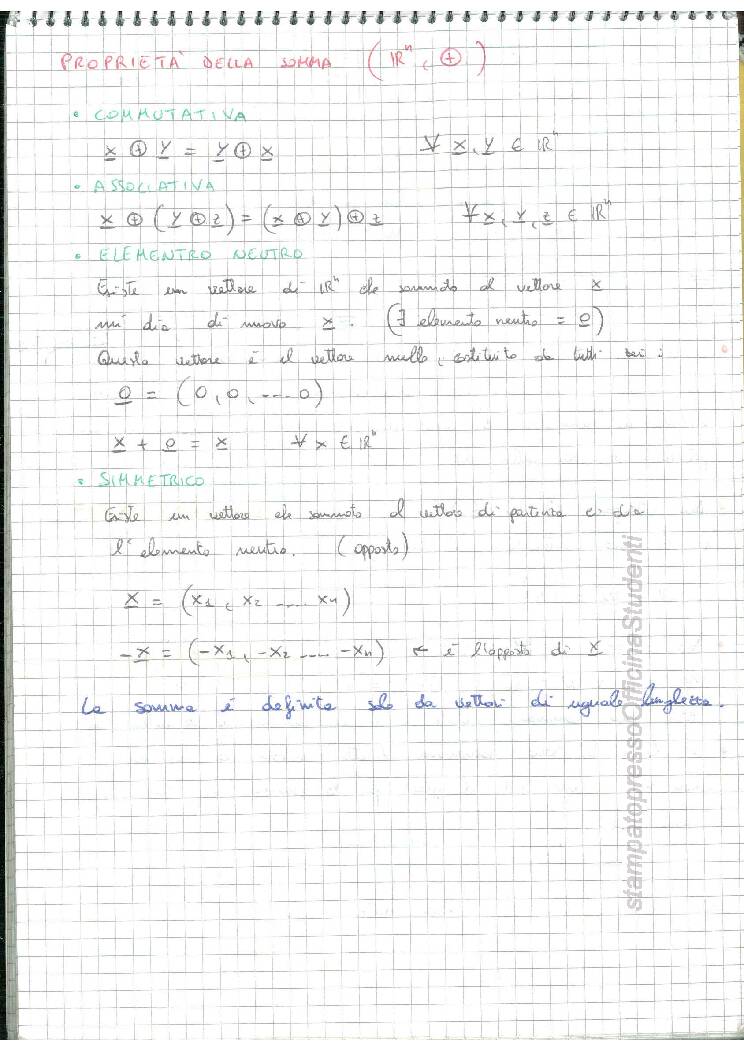 PROPRIETÀ DELLA SOMMA (ℝⁿ, ⊕)
• COMMUTATIVA
x ⊕ y = y ⊕ x ∀ x, y ∈ ℝⁿ
• ASSOCIATIVA
x ⊕ (y ⊕ z) = (x ⊕ y) ⊕ z ∀ x, y, z ∈ ℝⁿ
• ELEMENTRO NEUTRO
Esiste un vettore di ℝⁿ che sommato al vettore x
mi dia di nuovo x. (∃ elemento neutro = 0)
Questo vettore è il vettore nullo, costituito da tutti zeri:
0 = (0, 0, .... 0)
x + 0 = x ∀ x ∈ ℝⁿ
• SIMMETRICO
Esiste un vettore che sommato al vettore di partenza ci dia
l'elemento neutro. (opposto)
x = (x₁, x₂ .... xₙ)
-x = (-x₁, -x₂ .... -xₙ) ← è l'opposto di x
La somma è definita solo da vettori di uguale lunghezza.
stampatopressoOfficinaStudenti